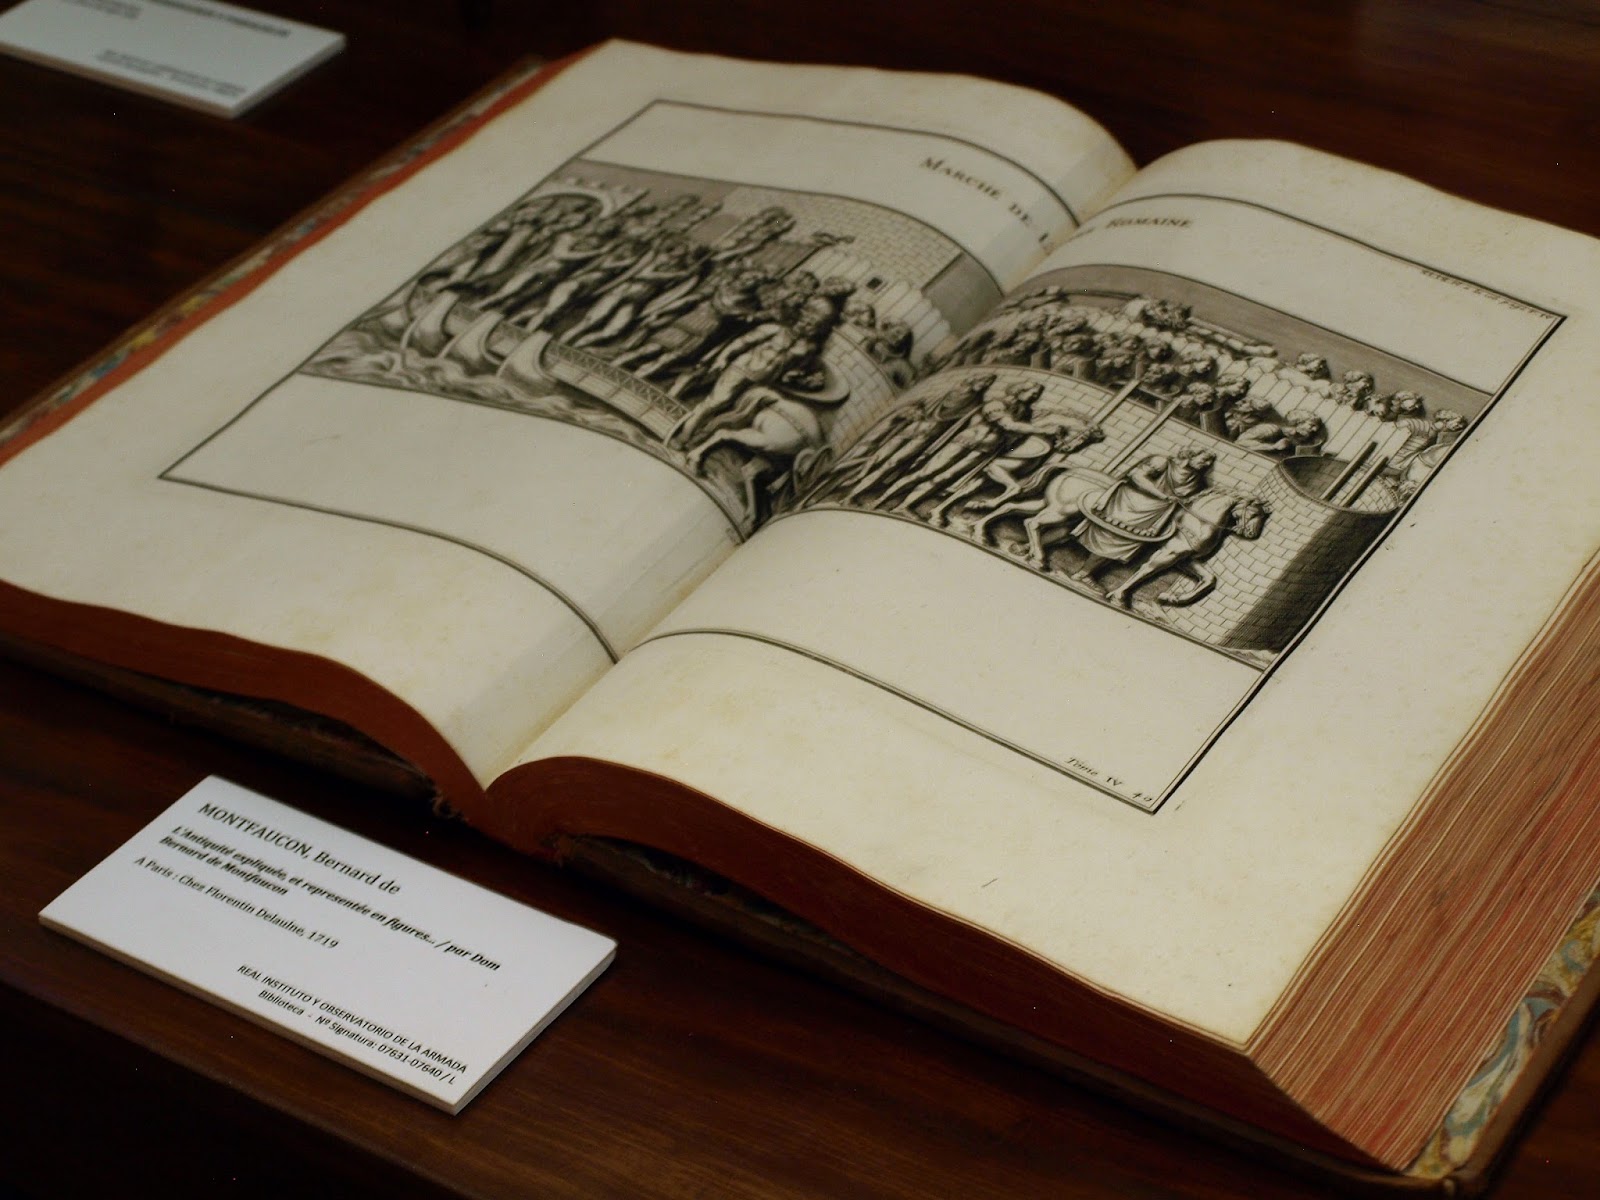 MARCHE DE L
ROMAINE
Tome IV 40
MONTFAUCON, Bernard de
L'Antiquité expliquée, et representée en figures... / par Dom
Bernard de Montfaucon
A Paris : Chez Florentin Delaulne, 1719
REAL INSTITUTO Y OBSERVATORIO DE LA ARMADA
Biblioteca - Nº Signatura: 07631-07640 / L